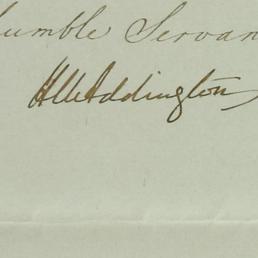 Humble Servan
H U Addington